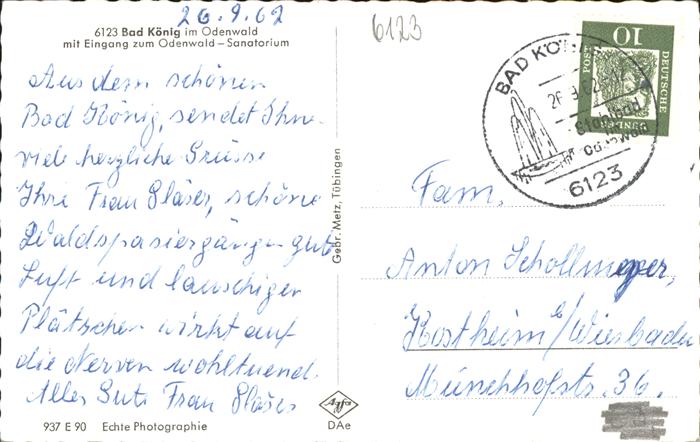 26.9.62
6123 Bad König im Odenwald
mit Eingang zum Odenwald – Sanatorium
Aus dem schönen
Bad König, sendet Ihne-
viele herzliche Grüsse
Ihre Frau Gläser, schöne
Waldspaziergängen gute
Luft und lauschiger
Plätschen wirkt auf
die Nerven wohltuend.
Alles Gute Frau Gläser
937 E 90 Echte Photographie
Gebr. Metz, Tübingen
Agfa
DAe
6123
10
DEUTSCHE
BUNDESPOST
BAD KÖNIG
26.9.62
Odenwald
6123
Fam.
Anton Schollmeyer,
Kostheim b/Wiesbaden
Münchhofstr. 36.